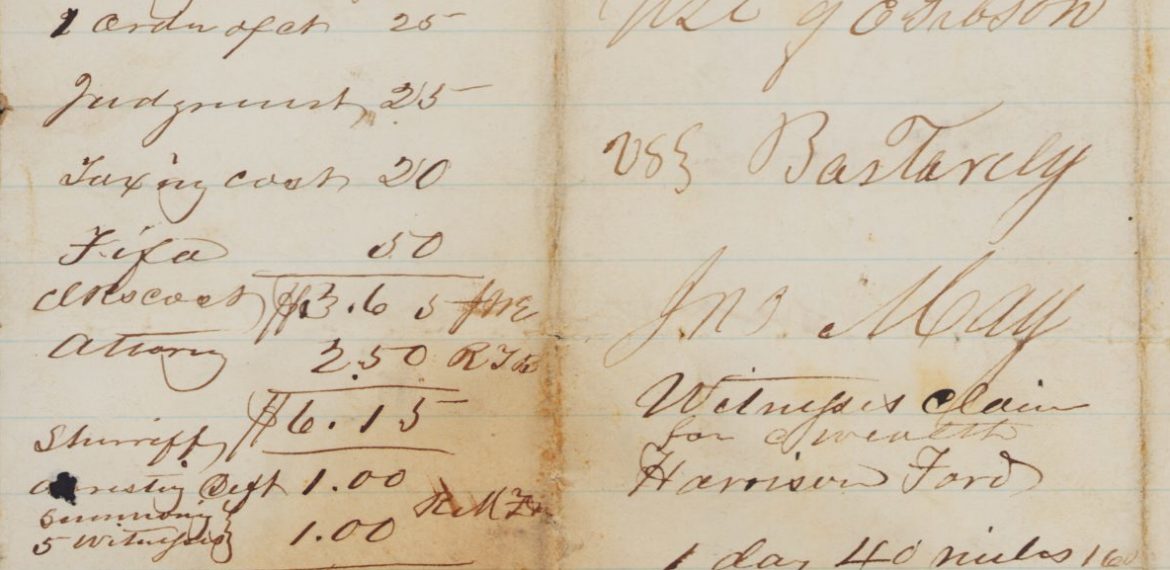 1 Order of ct 25
Judgment 25
Taxing cost 20
Fifa 50
Clks cost $3.65
Attorny 2.50
$6.15
Sherriff
Arresting Deft 1.00
Summoning
5 Witnesses 1.00
Use of E Gibson
vs Bastardy
Jno May
Witnesses claim
for C wealth
Harrison Ford
1 day 40 miles 160